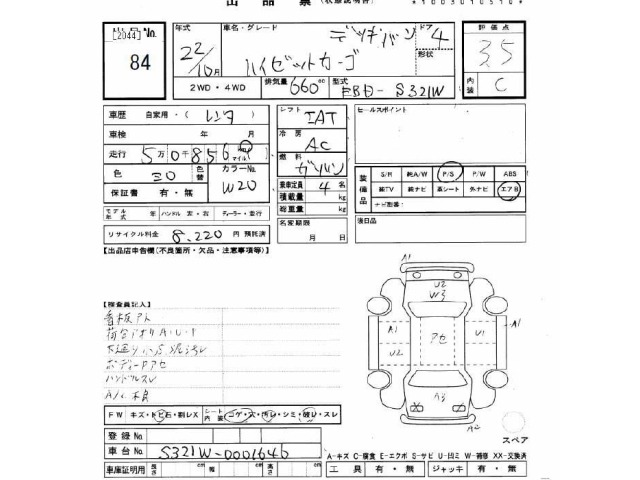 出品票 (状態説明書) *1003010510*
出品No. 84
年式 22/10月
車名・グレード デッキバン
ハイゼットカーゴ
ドア 4
形状
評価点 3.5
内装 C
2WD・4WD
排気量 660 cc
型式 EBD-S321W
車歴 自家用・( レンタ )
車検 年 月
走行 5万0千856 km マイル
色 シロ 色替
カラーNo. W20
保証書 有・無
シフト IAT
冷房 AC
燃料 ガソリン
乗車定員 4 名
積載量 kg
総重量 kg
セールスポイント
装備品 S/R 純A/W P/S P/W ABS
純TV 純ナビ 革シート 外ナビ エアB
ナビ脱着:
モデル年式 年 ハンドル 左・右 ディーラー・並行
リサイクル料金 8,220 円 預託済
名変期限 月 日
後日品
【出品店申告欄(不良箇所・欠品・注意事項等)】
【検査員記入】
看板アト
荷台アオリA・U・1
ボディードアセ
ハンドルスレ
A/C不良
FW キズ・トビ石・割レX シート内装 コゲ・穴・汚レ・シミ・破レ・スレ
登録No.
車台No. S321W-0001646
車庫証明用 長さ cm 幅 cm 高さ cm
A1
U2
W3
A1
U2
アセ
U1
A1
A3
A2
スペア
A-キズ C-腐食 E-エクボ S-サビ U-凹ミ W-補修 XX-交換済
工具 有・無 ジャッキ 有・無